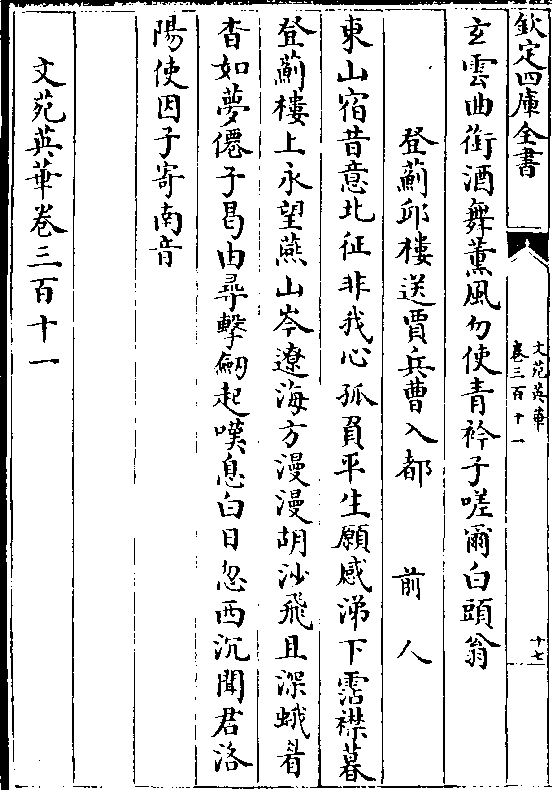 欽定四庫全書
文苑英華
卷三百十一
十七
玄雲曲銜酒舞薰風勿使青衿子嗟爾白頭翁
登薊邱樓送賈兵曹入都　前人
東山宿昔意北征非我心孤負平生願感涕下霑襟暮
登薊樓上永望燕山岑遼海方漫漫胡沙飛且深蛾眉
杳如夢僊子曷由尋擊劒起嘆息白日忽西沉聞君洛
陽使因子寄南音
文苑英華卷三百十一